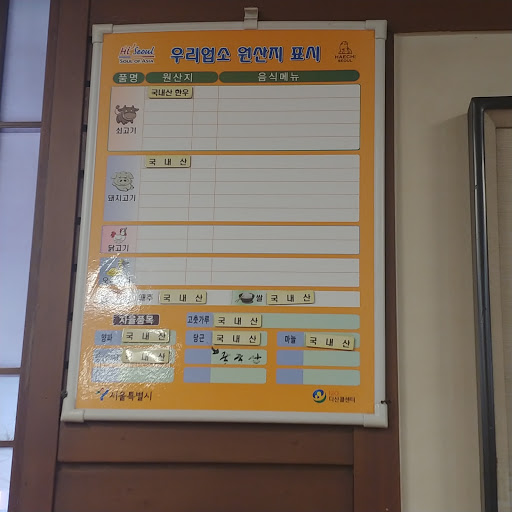 Hi Seoul 우리업소 원산지 표시 HAECHI
SOUL OF ASIA
품명 원산지 음식메뉴
국내산 한우
쇠고기
국 내 산
돼지고기
닭고기
배추 국 내 산 쌀 국 내 산
자율품목 고춧가루 국 내 산
양파 국 내 산 당근 국 내 산 마늘 국 내 산
국 내 산
서울특별시 다산콜센터